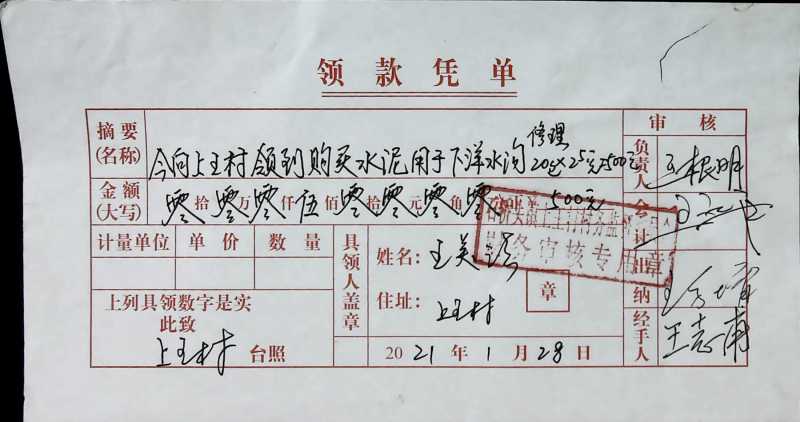 领款凭单
摘要(名称) 今向上王村领到购买水泥用于下洋水沟修理20包×25元=500元
审核
负责人 王根明
金额(大写) 零拾零万零仟伍佰零拾零元零角零分 单 500元
会计
计量单位 单价 数量
具领人盖章
姓名:王美
住址:上王村
章
务审核专用章
出纳
上列具领数字是实
此致
上王村 台照
2021年1月28日
经手人 王志南